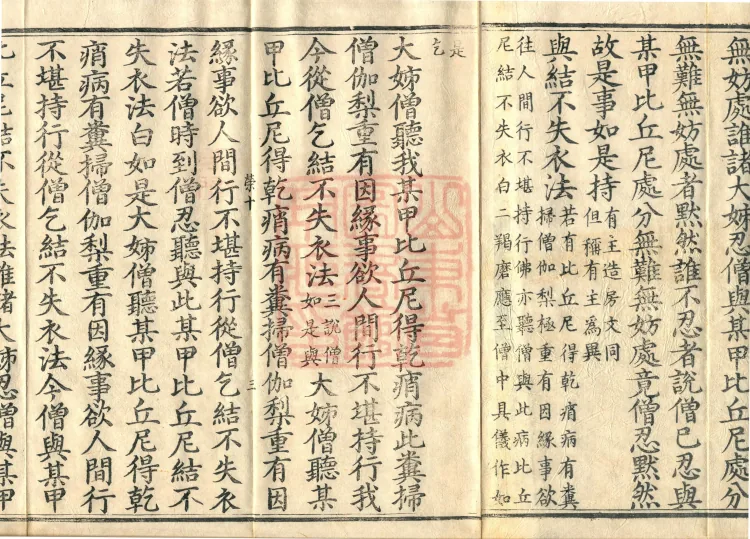 無妨處誰諸大姊忍僧與某甲比丘尼處分
無難無妨處者默然誰不忍者說僧已忍與
某甲比丘尼處分無難無妨處竟僧忍默然
故是事如是持
有主造房文同
但稱有主爲異
與結不失衣法
若有比丘尼得乾痟病有糞
掃僧伽梨極重有因緣事欲
往人間行不堪持行佛亦聽僧與此病比丘
尼結不失衣白二羯磨應至僧中具儀作如
是
乞
大姊僧聽我某甲比丘尼得乾痟病此糞掃
僧伽梨重有因緣事欲人間行不堪持行我
今從僧乞結不失衣法
三說僧
如是與
大姊僧聽某
甲比丘尼得乾痟病有糞掃僧伽梨重有因
榮十 三
緣事欲人間行不堪持行從僧乞結不失衣
法若僧時到僧忍聽與此某甲比丘尼結不
失衣法白如是大姊僧聽某甲比丘尼得乾
痟病有糞掃僧伽梨重有因緣事欲人間行
不堪持行從僧乞結不失衣法今僧與某甲
比丘尼結不失衣法誰諸大姊忍僧與某甲